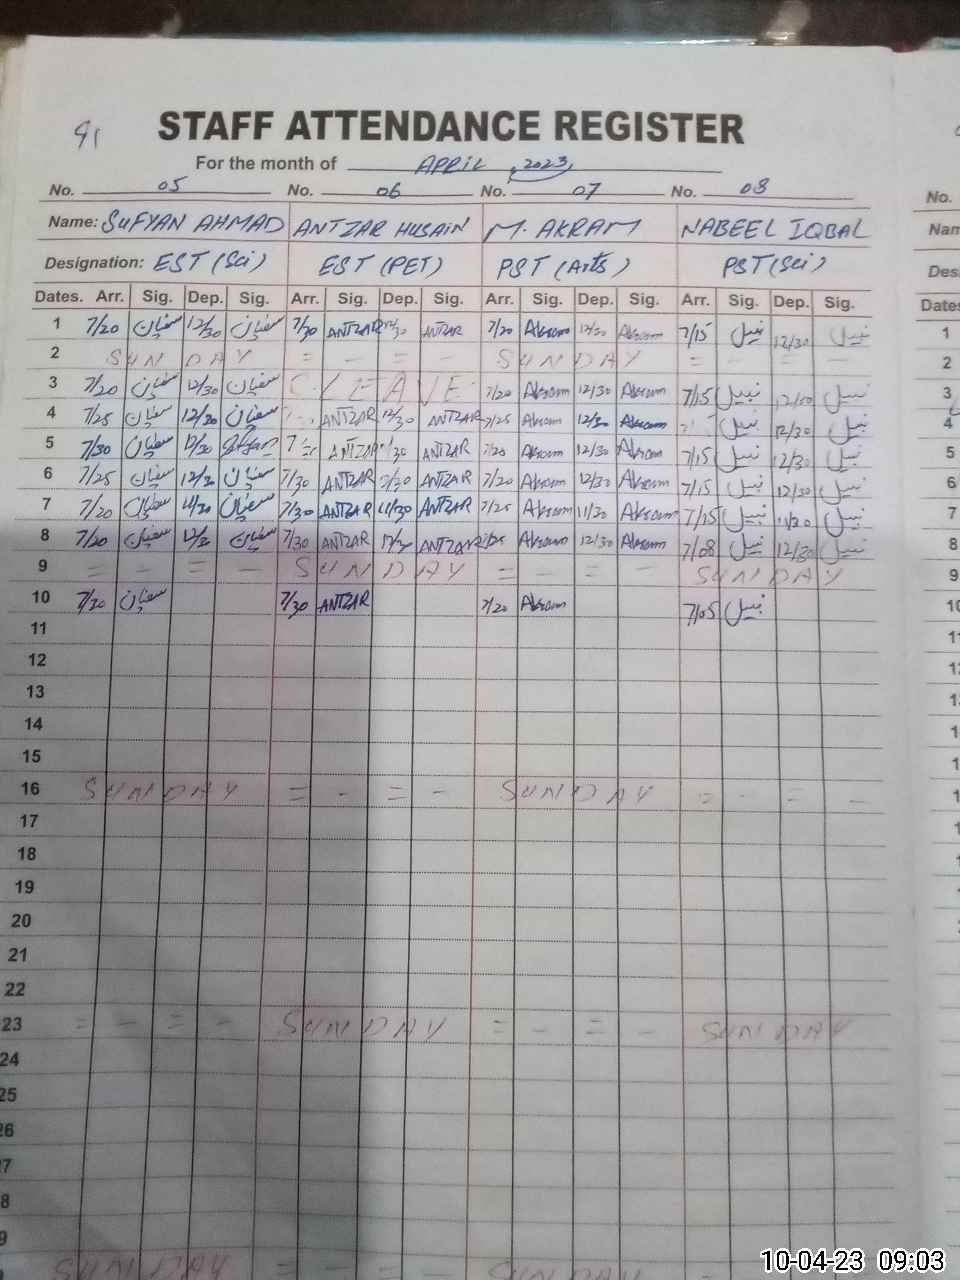 91
STAFF ATTENDANCE REGISTER
For the month of APRIL, 2023,
No. 05 No. 06 No. 07 No. 08 No.
Name: SUFYAN AHMAD ANTZAR HUSAIN M. AKRAM NABEEL IQBAL Nam
Designation: EST (Sci) EST (PET) PST (Arts) PST (Sci) Des
Dates. Arr. Sig. Dep. Sig. Arr. Sig. Dep. Sig. Arr. Sig. Dep. Sig. Arr. Sig. Dep. Sig. Dates
1 7/20 سفیان 12/30 سفیان 7/30 ANTZAR 12/30 ANTZAR 7/20 Akram 12/30 Akram 7/15 نبیل 12/30 نبیل 1
2 SUNDAY = - = - SUNDAY = - = - 2
3 7/20 سفیان 12/30 سفیان C/LEAVE 7/20 Akram 12/30 Akram 7/15 نبیل نبیل 3
4 7/25 سفیان 12/30 سفیان ANTZAR 12/30 ANTZAR 7/25 Akram 12/30 Akram نبیل 12/30 نبیل 4
5 7/30 سفیان 12/30 ANTZAR ANTZAR 7/20 Akram 12/30 Akram 7/15 نبیل 12/30 نبیل 5
6 7/25 سفیان 12/30 سفیان 7/30 ANTZAR 12/30 ANTZAR 7/20 Akram 12/30 Akram 7/15 نبیل 12/30 نبیل 6
7 7/20 سفیان 11/30 سفیان 7/30 ANTZAR 11/30 ANTZAR 7/25 Akram 11/30 Akram 7/15 نبیل نبیل 7
8 7/20 سفیان سفیان 7/30 ANTZAR ANTZAR Akram 12/30 Akram 7/08 نبیل 12/30 نبیل 8
9 = - = - SUNDAY = - = - SUNDAY 9
10 7/30 سفیان 7/30 ANTZAR 7/20 Akram 7/05 نبیل 10
11
12
13
14
15
16 SUNDAY = - = - SUNDAY = - = -
17
18
19
20
21
22
23 = - = - SUNDAY = - = - SUNDAY
24
25
26
27
28
29
10-04-23 09:03